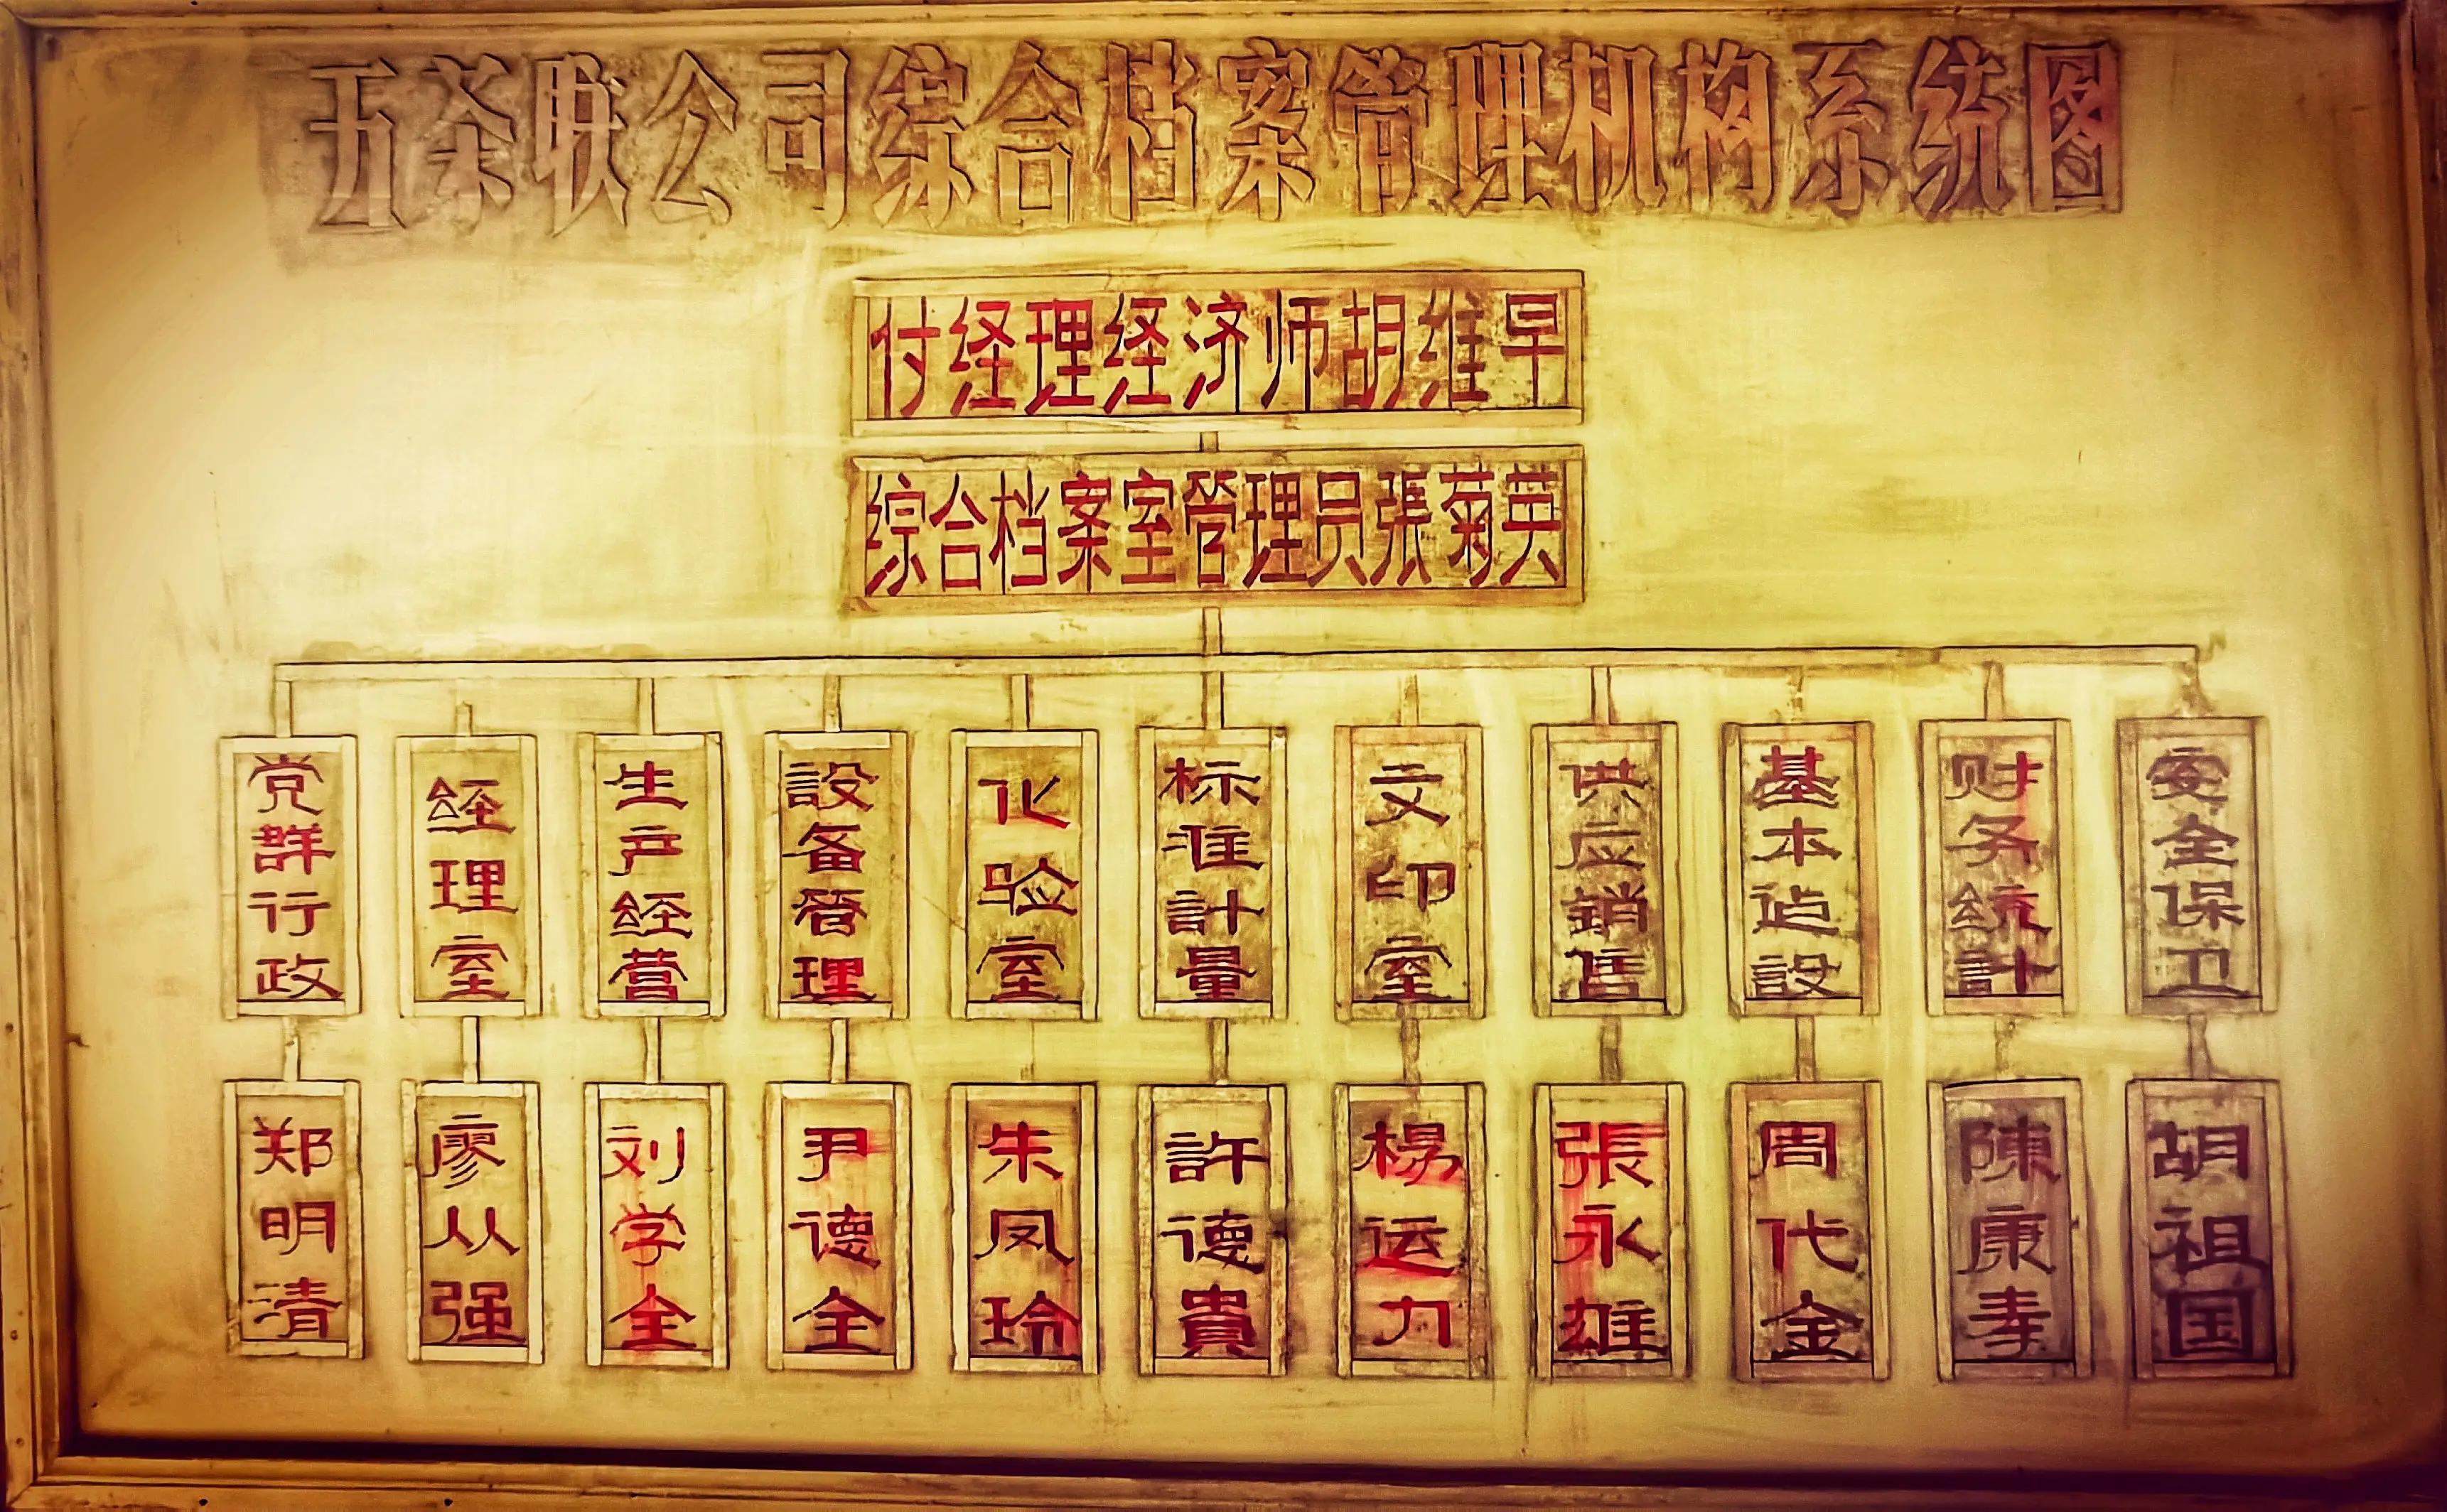 五茶联公司综合档案管理机构系统图
付经理经济师胡维早
综合档案室管理员張菊英
党群行政
经理室
生产经营
設备管理
化验室
标准計量
文印室
供应銷售
基本造設
财务统計
安全保卫
郑明清
廖从强
刘学全
尹德全
朱凤玲
許德貴
楊运力
張永雄
周代金
陳康寿
胡祖国